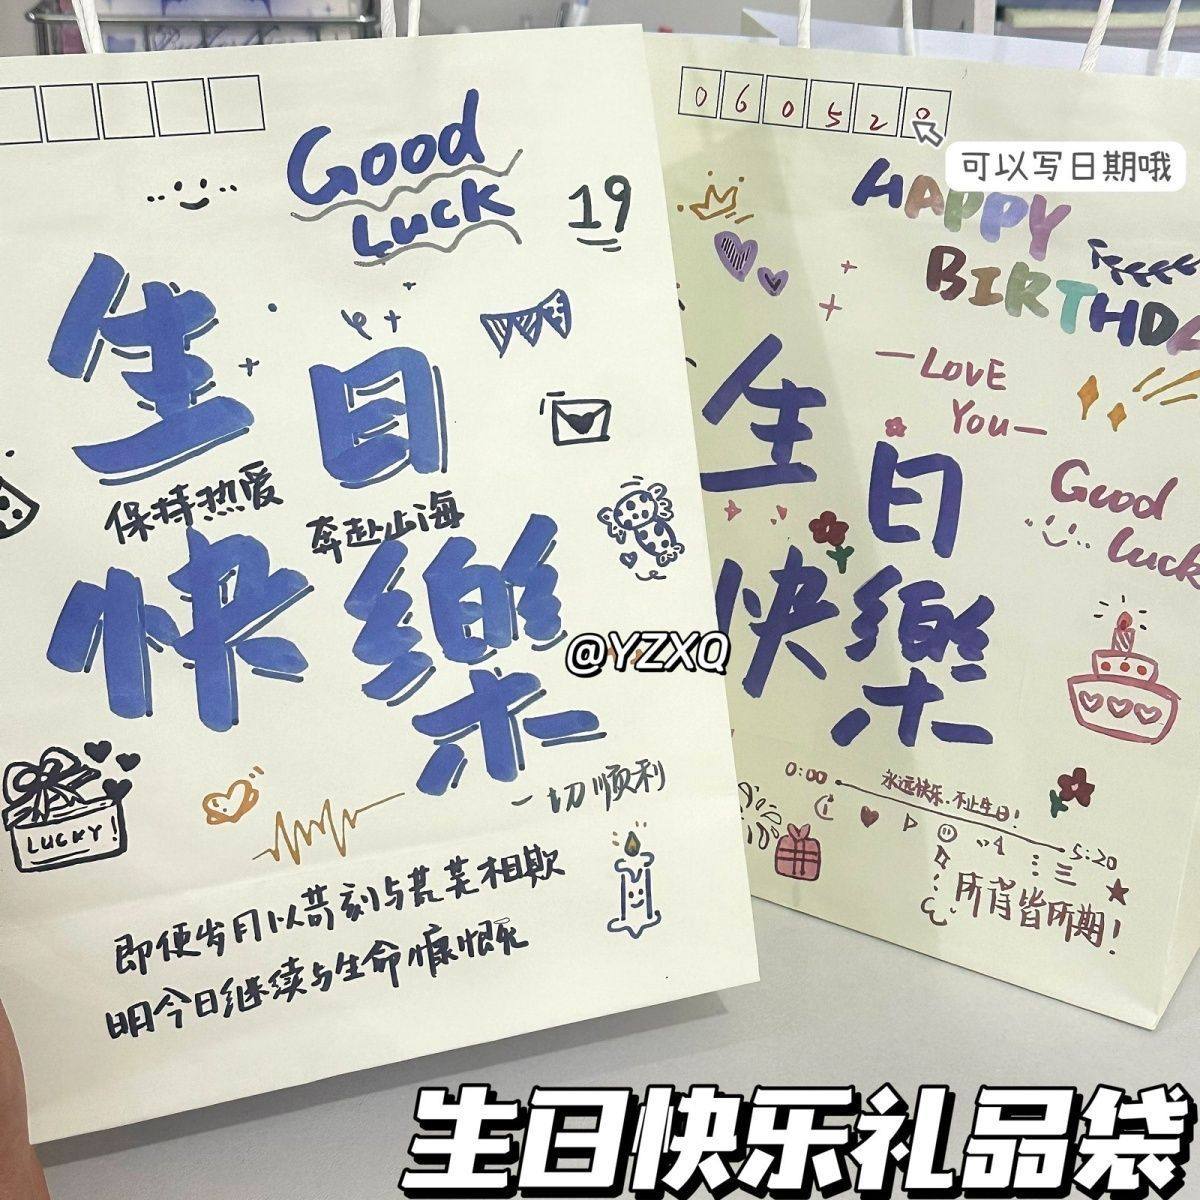 Good
Luck
19
生日
保持热爱
奔赴山海
快樂
一切顺利
LUCKY!
即使岁月以苛刻与荒芜相欺
明今日继续与生命慷慨
060520
可以写日期哦
HAPPY
BIRTHDA
—LOVE
You—
生日
Good
luck
快樂
@YZXQ
0:00
永远快乐，不止生日！
5:20
所有皆所期！
生日快乐礼品袋